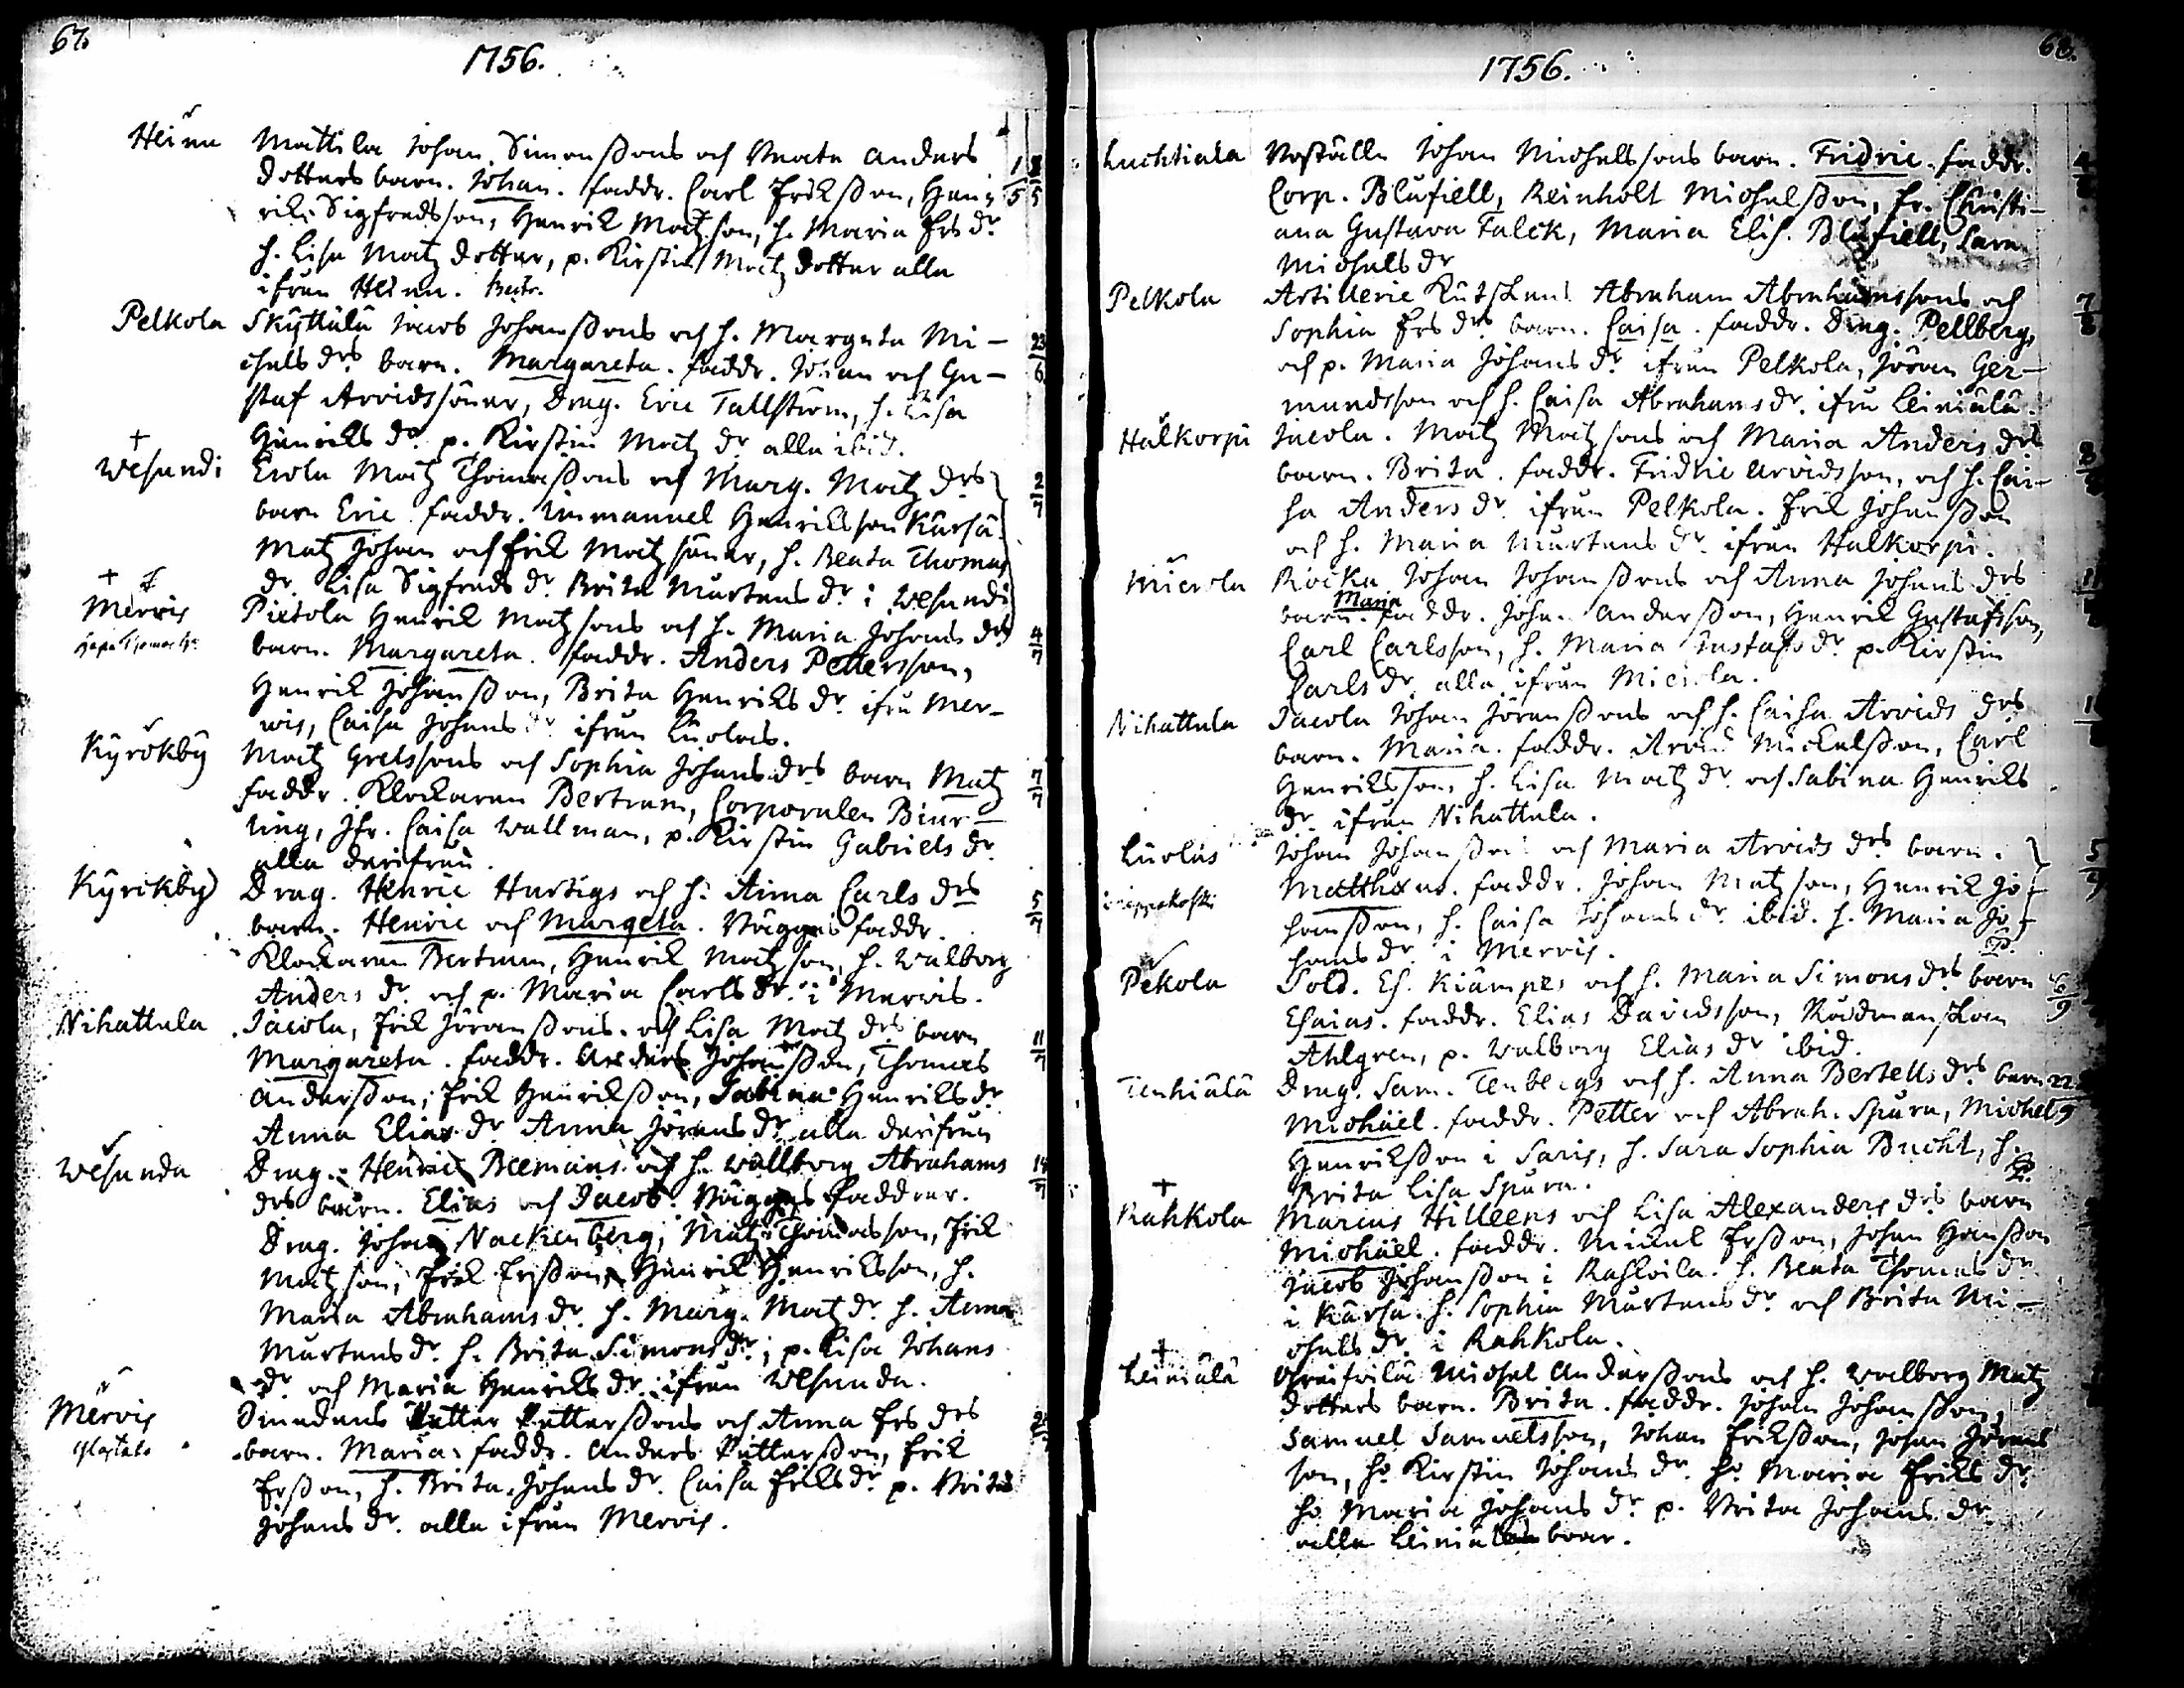 67.
1756.
Heinu Mattila Johan Simonssons och Beata Anders
dotters barn. Johan. faddr. Carl Eriksson, Hen-
rik Sigfredsson, Henrik Matzson, h. Maria Ers dr
h. Lisa Matz dotter, p. Kirstin Matz dotter alla
ifrån Heinu.
1/5
Pelkola Skyttälä Jacob Johanssons och h. Margeta Mi-
chels drs barn. Margareta. faddr. Johan och Gu-
staf Arvidssöner, Drag. Eric Tallström, h. Lisa
Henriks dr p. Kirstin Matz dr alla ibid.
23/6
Wesundi Erola Matz Thomassons och Marg. Matz drs
barn Eric. faddr. Immanuel Henriksson Kärsä.
Matz Johan och Erik Matz söner, h. Beata Thomas
dr. Lisa Sigfreds dr. Brita Mårtens dr i Wesundi
2/7
Mervis Pietola Henrik Matzsons och h. Maria Johans drs
barn. Margareta. faddr. Anders Pettersson,
Henrik Johansson, Brita Henriks dr. ifrå Mer-
vis, Caisa Johans dr ifrån Luolas.
4/7
Kyrökby Matz Gretssons och Sophia Johans drs barn Matz
faddr. Klockaren Bertram, Corporalen Biur-
ling, Jfr. Caisa Wallman, p. Kirstin Gabriels dr.
alla derifrån.
7/7
Kyrökby Drag. Henric Hurtigs och h. Anna Carls drs
barn. Henric och Margeta. Bägges faddr.
Klockaren Bertram, Henrik Matzson, h. Walborg
Anders dr. och p. Maria Carls dr. i Mervis.
5/7
Nihattula Jacola, Erik Jöranssons och Lisa Matz drs barn
Margareta. faddr. Anders Johansson, Thomas
Andersson, Erik Henriksson, Sabina Henriks dr
Anna Elias dr Anna Jörans dr. alla derifrån
11/7
Wesunda Drag. Henric Beemans och h. Wallborg Abrahams
drs barn. Elias och Jacob. Bägges faddrar.
Drag. Johan Nackenberg, Matz Thomasson, Erik
Matzson, Erik Ersson, Henrik Henriksson, h.
Maria Abrahams dr. h. Marg. Matz dr. h. Anna
Mårtens dr. h. Brita Simons dr., p. Lisa Johans
dr. och Maria Henriks dr. ifrån Wesunda.
14/7
Mervis Smedens Petter Petterssons och Anna Ers drs
barn. Maria. faddr. Anders Pettersson, Erik
Ersson, h. Brita Johans dr. Caisa Eriks dr. p. Brita
Johans dr. alla ifrån Mervis.
68.
1756.
Luchtiala Boställe Johan Michelssons barn. Fridric. faddr.
Corp. Blåfiell, Reinholt Michelsson, fr. Christi-
ana Gustava Falck, Maria Elis. Blåfiell, Sara
Michels dr
Pelkola Artillerie Kutskens Abraham Abrahamssons och
Sophia Ers drs barn. Caisa. faddr. Drag. Pellberg,
och p. Maria Johans dr ifrån Pelkola, Jöran Ger-
mundsson och h. Caisa Abrahams dr. ifrå Leiniälä.
7/8
Halkorpi Jacola. Matz Matzsons och Maria Anders drs
barn. Brita. faddr. Fridric Arvidsson, och h. Cai-
sa Anders dr. ifrån Pelkola. Erik Johansson
och h. Maria Mårtens dr. ifrån Halkorpi.
Mierola Rocka Johan Johanssons och Anna Johans drs
barn. Maria faddr. Johan Andersson, Henrik Gustafsson,
Carl Carlsson, h. Maria Gustafs dr. p. Kirstin
Carls dr. alla ifrån Mierola.
Nihattula Jacola Johan Jöranssons och h. Caisa Arvids drs
barn. Maria. faddr. Arvid Mickelsson, Carl
Henriksson, h. Lisa Matz dr. och Sabina Henriks
dr. ifrån Nihattula.
Luolas Johan Johanssons och Maria Arvids drs barn.
Matthæus. faddr. Johan Matzson, Henrik Jo-
hansson, h. Caisa Johans dr. ibid. h. Maria Jo-
hans dr. i Mervis.
Pekola Sold. Es. Kiämpes och h. Maria Simons drs barn
Esaias. faddr. Elias Davidsson, Rådmanskan
Ahlgren, p. Walborg Elias dr ibid.
Tenhiälä Drag. Sam. Tenbergs och h. Anna Bertells drs barn
Michäel. faddr. Petter och Abrah. Spåra, Michel
Henriksson i Saris, h. Sara Sophia Bucht, h.
Brita Lisa Spåra.
22/9
Rahkola Marcus Hilleens och Lisa Alexanders drs barn
Michäel. faddr. Michel Ersson, Johan Hansson
Jacob Johansson i Rahkoila. h. Beata Thomas dr
i Kärsä. h. Sophia Mårtens dr. och Brita Mi-
chels dr. i Rahkola.
Leiniälä Michel Anderssons och h. Walborg Matz
dotters barn. Brita. faddr. Johan Johansson,
Samuel Samuelsson, Johan Eriksson, Johan Jörans
son, h. Kirstin Johans dr. h. Maria Eriks dr.
h. Maria Johans dr. p. Brita Johans dr.
alla Leiniälä boar.